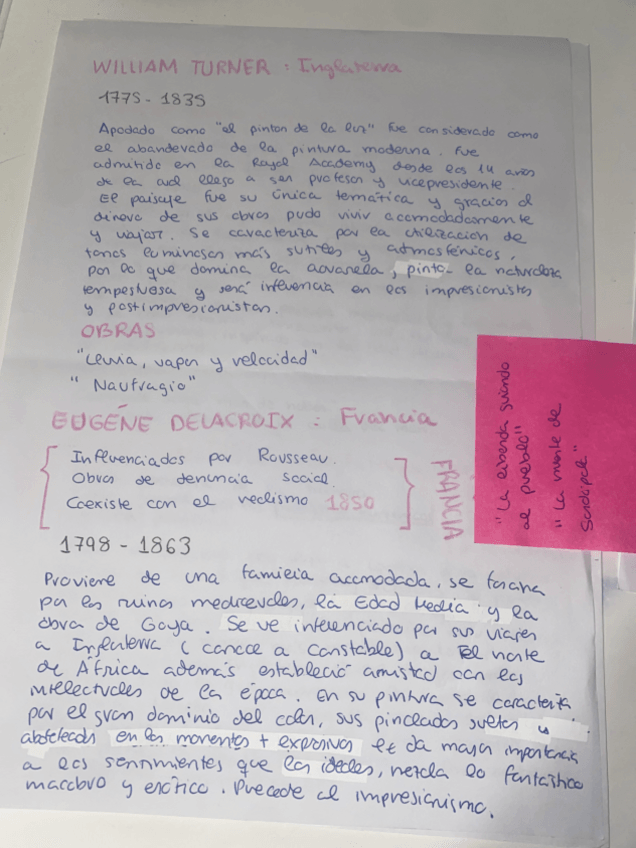 WILLIAM TURNER : Inglaterra
1775 - 1835
Apodado como "el pintor de la luz" fue considerado como
el abanderado de la pintura moderna. Fue
admitido en la Royal Academy desde los 14 años
de la cual llego a ser profesor y vicepresidente.
El paisaje fue su única temática y gracias al
dinero de sus obras pudo vivir accomodadamente
y viajar. Se caracteriza por la utilización de
tonos luminosos más sutiles y atmosféricos,
por lo que domina la acuarela, pinto la naturaleza
tempestuosa y será influencia en los impresionistas
y postimpresionistas.
OBRAS
"Lluvia, vapor y velocidad"
"Naufragio"
EUGÉNE DELACROIX : Francia
Influenciados por Rousseau.
Obras de denuncia social.
Coexiste con el realismo 1850
FRANCIA
1798 - 1863
Proviene de una familia accmodada, se forma
por las ruinas medievales, la Edad Media y la
obra de Goya. Se ve influenciado por sus viajes
a Inglaterra (conoce a Constable) a El norte
de África además estableció amistad con los
intelectuales de la época. En su pintura se caracteriza
por el gran dominio del color, sus pinceladas sueltas y
en los momentos + expresivos le da mayor importancia
a los sentimientos que las ideales, mezcla lo fantástico
macabro y erótico. Precede al impresionismo.
"La libertad guiando
al pueblo"
"La muerte de
Sardápal"